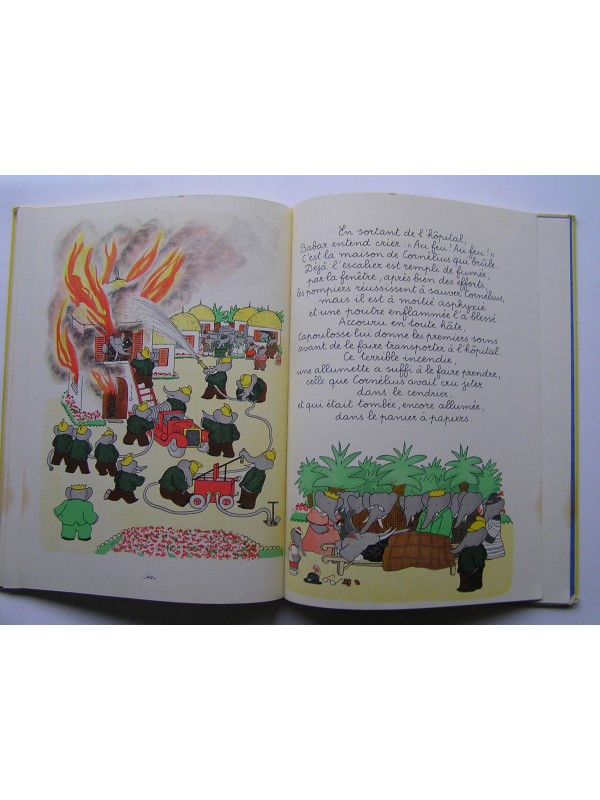 En sortant de l'hôpital,
Babar entend crier: "Au feu! Au feu!"
C'est la maison de Cornélius qui brûle.
Déjà l'escalier est rempli de fumée;
par la fenêtre, après bien des efforts,
les pompiers réussissent à sauver Cornélius,
mais il est à moitié asphyxié
et une poutre enflammée l'a blessé.
Accouru en toute hâte,
Capoulosse lui donne les premiers soins
avant de le faire transporter à l'hôpital.
Ce terrible incendie,
une allumette a suffi à le faire prendre,
celle que Cornélius avait cru jeter
dans le cendrier,
et qui était tombée, encore allumée,
dans le panier à papiers.
40